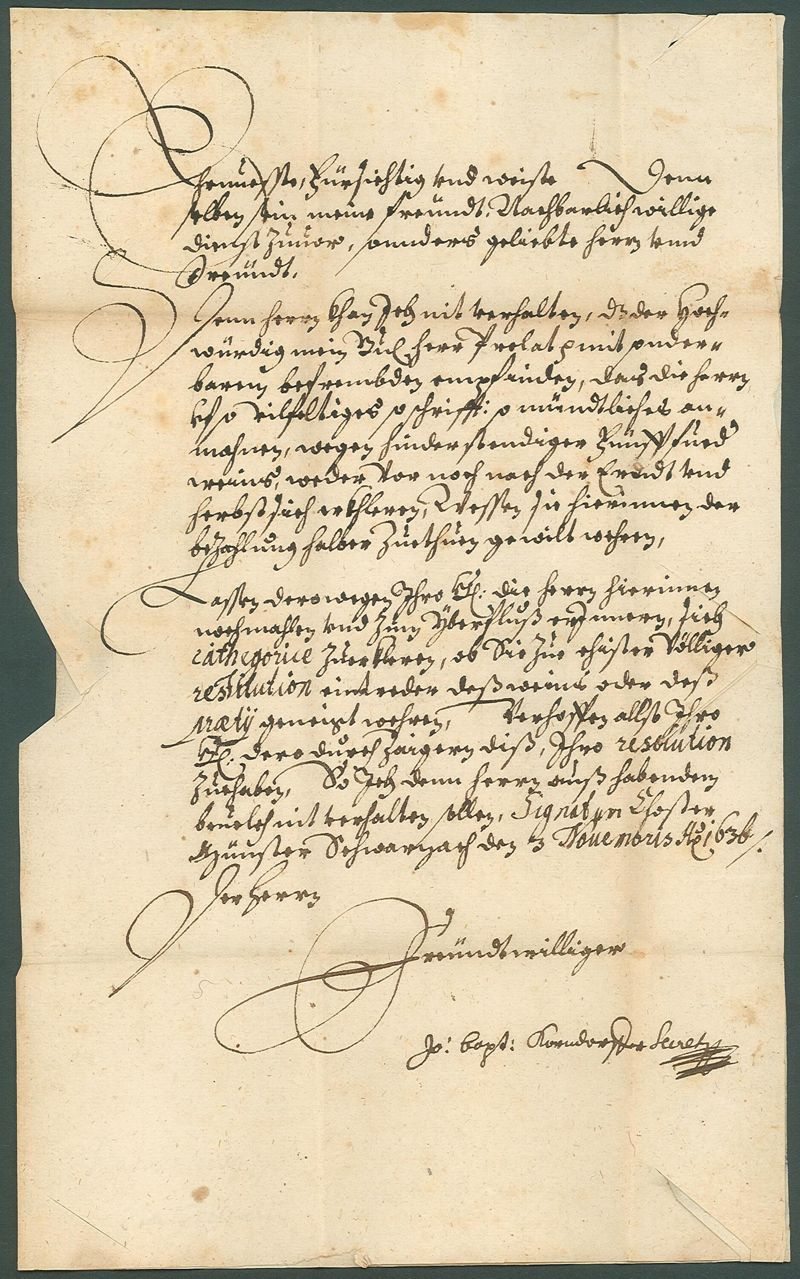 Ehrnueste, Fürsichtig vnd weise Denn
selben sein meine freündt: Nachbarlich willige
dienst Zuuor, sonnders geliebte herrn vnnd
Freündt.
Denn herrn khan Ich nit verhalten, dz der Hoch-
würdig mein herr Prelat mit sonder-
barem befrembden empfinden, das die herrn
vf so vilfeltiges so schrifft: so mündtliches an-
mahnen, wegen hinderstendiger Fünff fued
weins, weder vor noch nach der Erndt vnd
herbst sich erkhleren, Wessen sie hierinnen der
bezahlung halber Zuethuen gewilt wehren,
Lassen derowegen Ihro die herrn hierinnen
nochmahlen vnd Zum Yberfluß erInnern, sich
cathegorice Zuerkleren, ob Sie Zue ehister völliger
restitution eintweder deß weins oder deß
prætij geneigt wehren, Verhoffen allso Ihro
dero durch Zaigern diß, Ihro resolution
Zuehaben, So Ich denn herrn auß habendem
beuelch nit verhalten sollen, Signatum Closter
Münster Schwarzach den 3 Nouembris Ao 1636
Der Herrn
Freündtwilliger
Jo: bapt: Korndorffer Secret